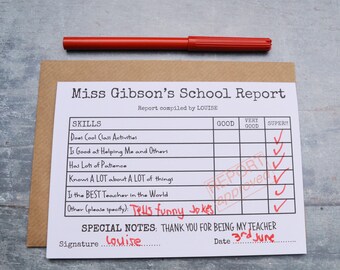 Miss Gibson's School Report
Report compiled by LOUISE
SKILLS GOOD VERY GOOD SUPER!!
Does Cool Class Activities
Is Good at Helping Me and Others
Has Lots of Patience
Knows A LOT about A LOT of things
Is the BEST Teacher in the World
Other (please specify): Tells funny Jokes
REPORT approved
SPECIAL NOTES: THANK YOU FOR BEING MY TEACHER
Signature Louise Date 3rd June